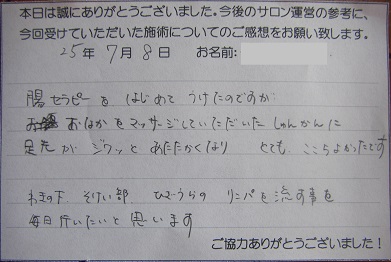 本日は誠にありがとうございました。今後のサロン運営の参考に、
今回受けていただいた施術についてのご感想をお願い致します。
25年 7月 8日 お名前:
腸セラピーを はじめて うけたのですが
おなかをマッサージしていただいた しゅんかんに
足先が ジワッと あたたかくなり とても ここちよかったです
わきの下、そけい部、ひざうらの リンパを 流す事を
毎日 行いたいと 思います
ご協力ありがとうございました!